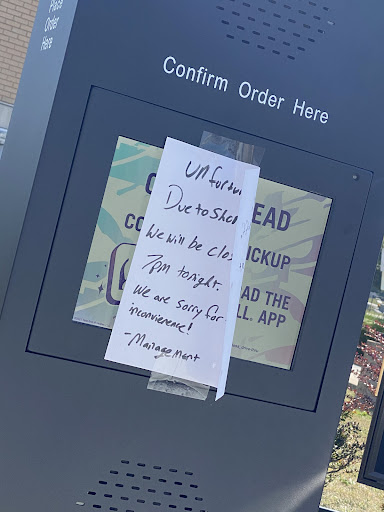 Place
Order
Here
Confirm Order Here
Unfortu
Due to Sho
We will be clos
7pm tonight.
We are sorry for
inconvenience!
-Management
EAD
CO
ICKUP
AD THE
LL. APP